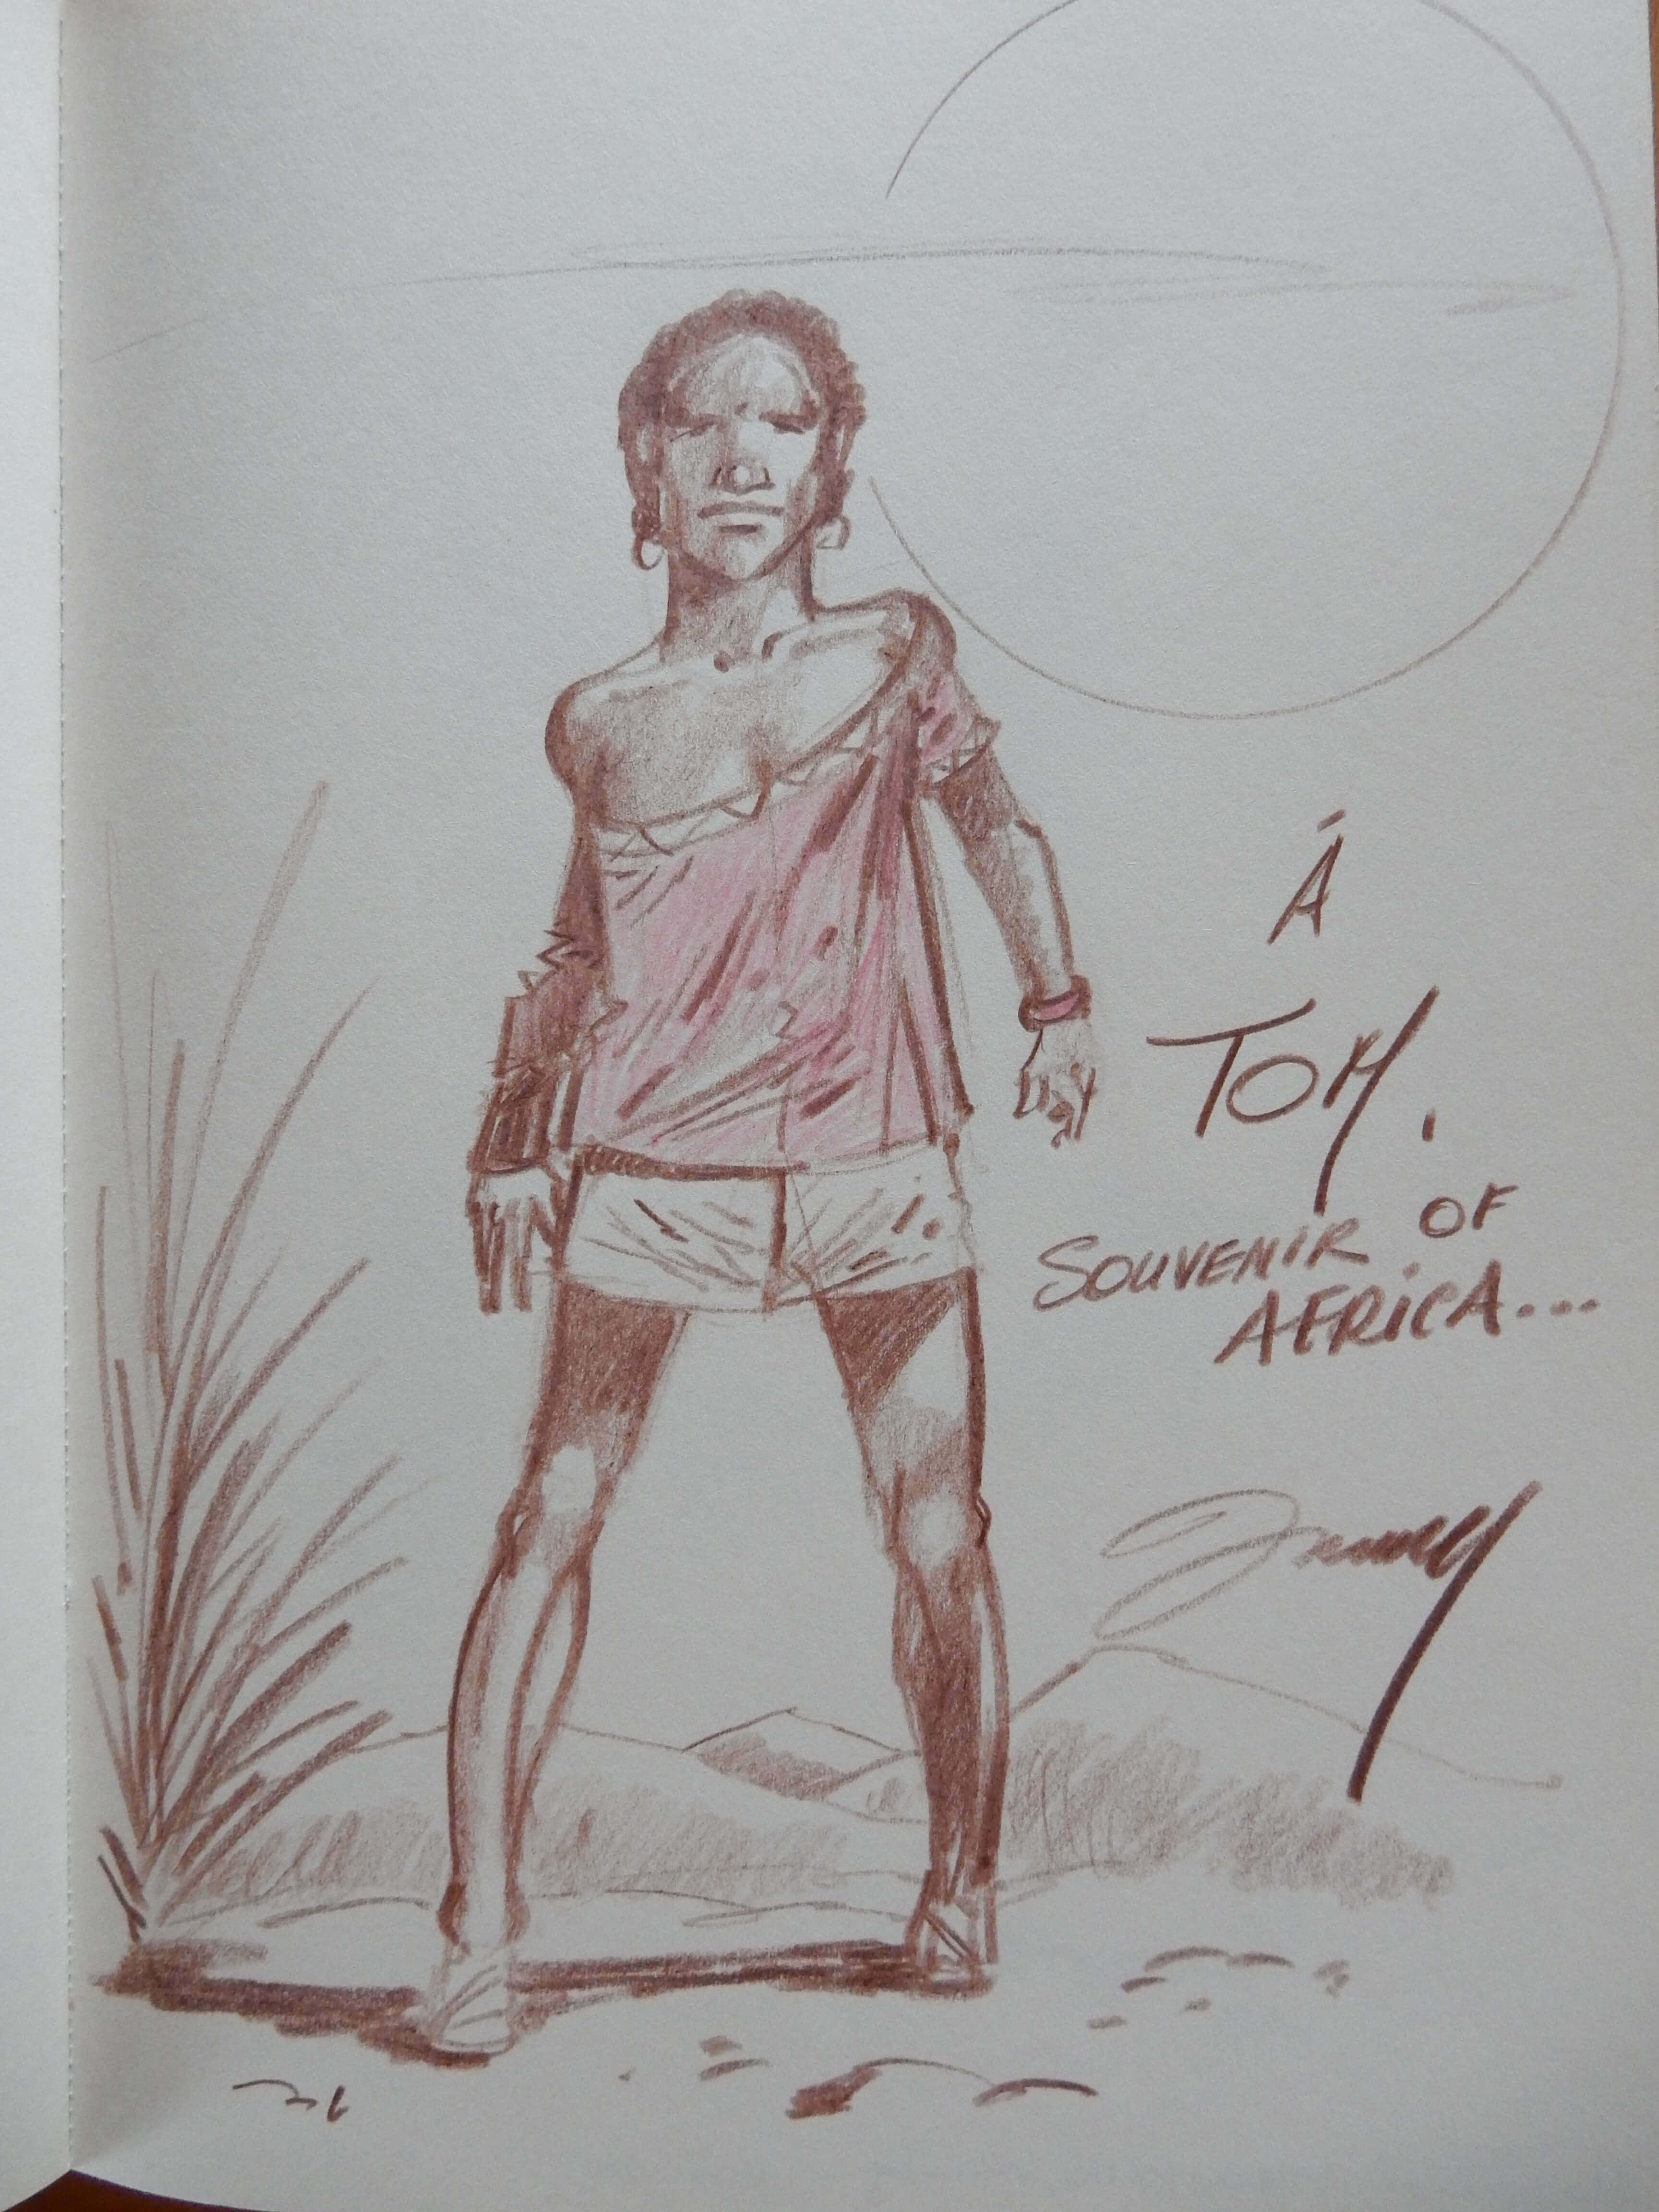 À
TOM,
SOUVENIR OF
AFRICA...